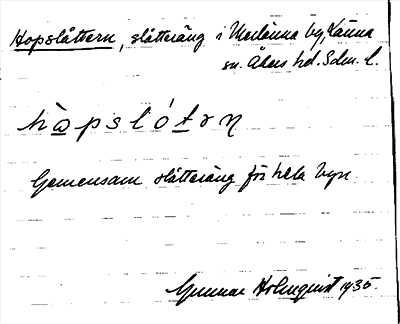 Hopslåttern, slåtteräng i Merlänna by, Länna
sn. Åkers hd. Sdm. l.
hò̱pslót̲ɤn
Gemensam slåtteräng för hela byn.
Gunnar Holmquist 1935.